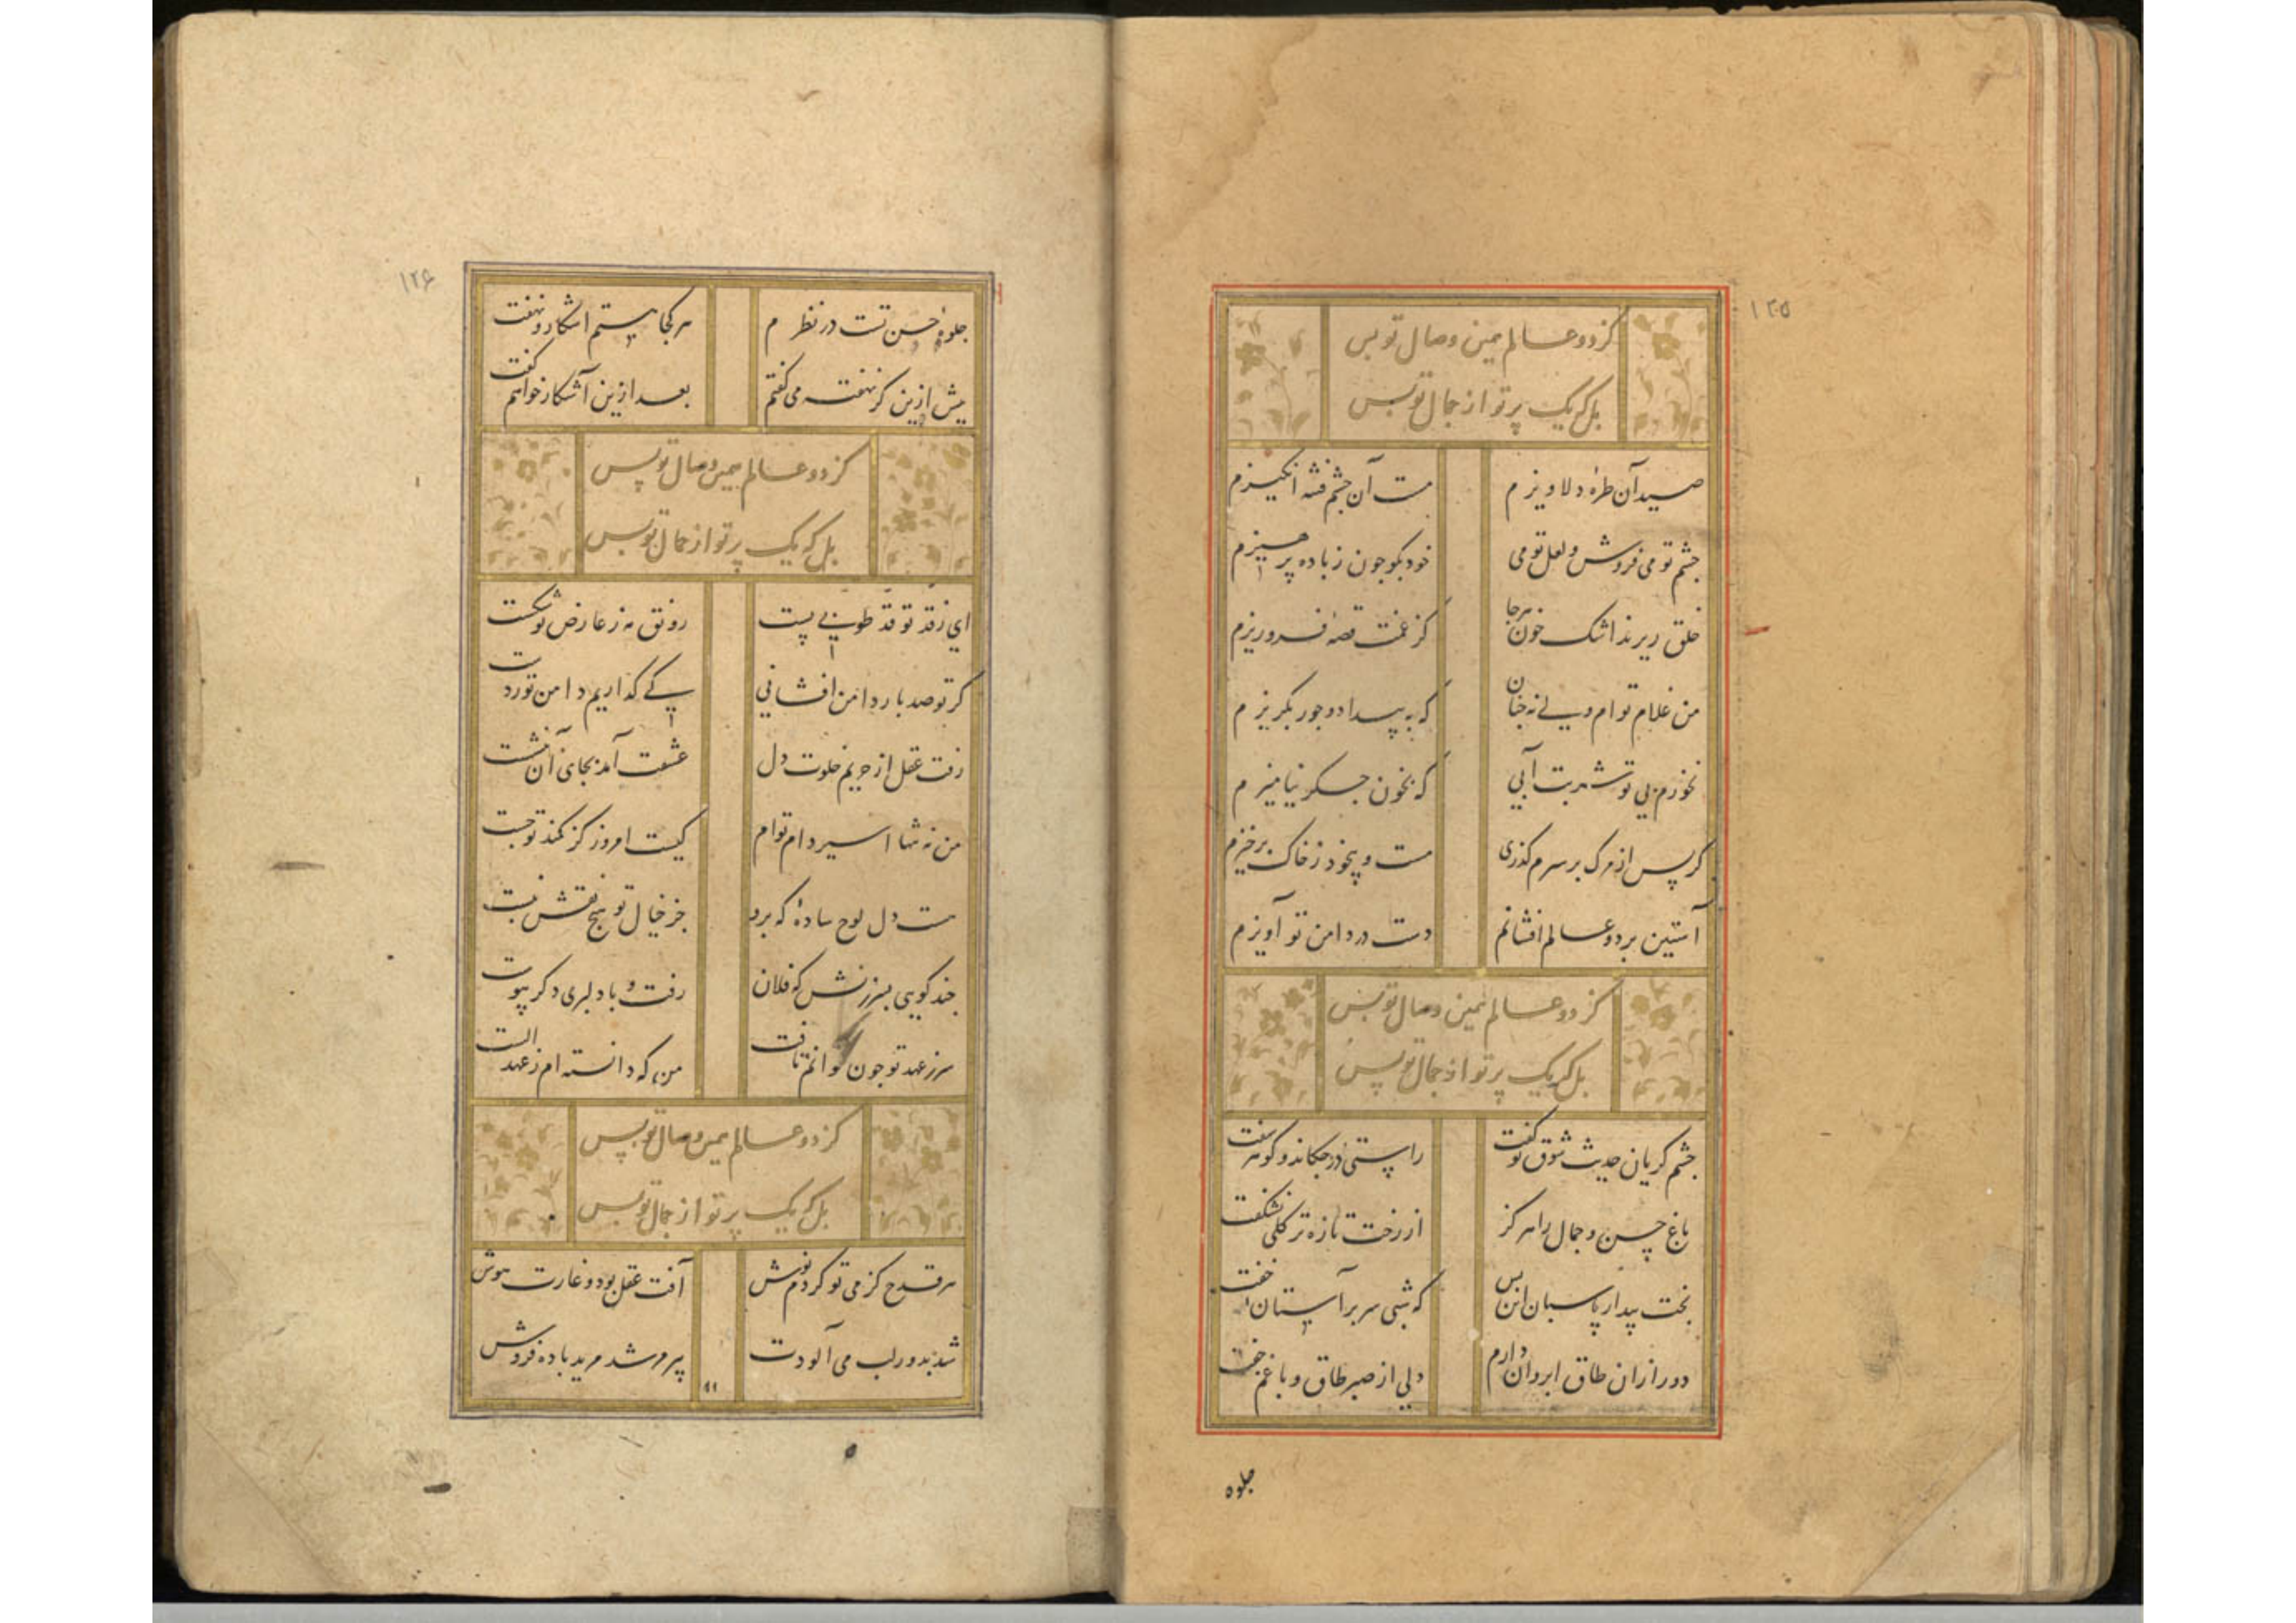 ۱۲۵
کز دو عالم همین وصال تو بس
بل که یک پرتو از جمال تو بس
صید آن طرهٔ دلاویزم مست آن چشم فتنه انگیزم
چشم تو می فروش و لعل تو می خود بکو چون ز باده پرهیزم
خلق ریزند اشک خون هرجا کز غمت قصهٔ فرو ریزم
من غلام توام ولی نه چنان که به بیداد و جور بکریزم
نخورم بی تو شربت آبی که بخون جکر نیامیزم
کر پس از مرک بر سرم کذری مست و بیخود ز خاک برخیزم
آستین بر دو عالم افشانم دست در دامن تو آویزم
کز دو عالم همین وصال تو بس
بل که یک پرتو از جمال تو بس
چشم کریان حدیث شوق تو کفت راستی در چکاند و کوهر سفت
باغ حسن و جمال را هرکز از رخت تازه تر کلی نشکفت
بخت بیدار پاسبان این بس که شبی سر بر آستان خفت
دور ازان طاق ابروان دارم دلی از صبر طاق و با غم جفت
جلوه
۱۲۶
جلوهٔ حسن تست در نظرم هر کجا بینم اشکار و نهفت
پیش ازین کر نهفته می کفتم بعد ازین آشکار خواهم کفت
کز دو عالم همین وصال تو بس
بل که یک پرتو از جمال تو بس
ای ز قد تو قد طوبی پست رونق مه ز عارض تو شکست
کر تو صد بار دامن افشانی کی کذاریم دامن تو ز دست
رفت عقل از حریم خلوت دل عشقت آمد بجای آن بنشست
من نه تنها اسیر دام توام کیست امروز کز کمند تو جست
هست دل لوح سادهٔ که برو جز خیال تو هیچ نقش نبست
چند کویی بسرزنش که فلان رفت و با دلبری دکر پیوست
سر ز عهد تو چون توانم تافت من که دانسته ام ز عهد الست
کز دو عالم همین وصال تو بس
بل که یک پرتو از جمال تو بس
هر قدح کز می تو کردم نوش آفت عقل بود و غارت هوش
شد بدور لب می آلودت پیر مرشد مرید باده فروش